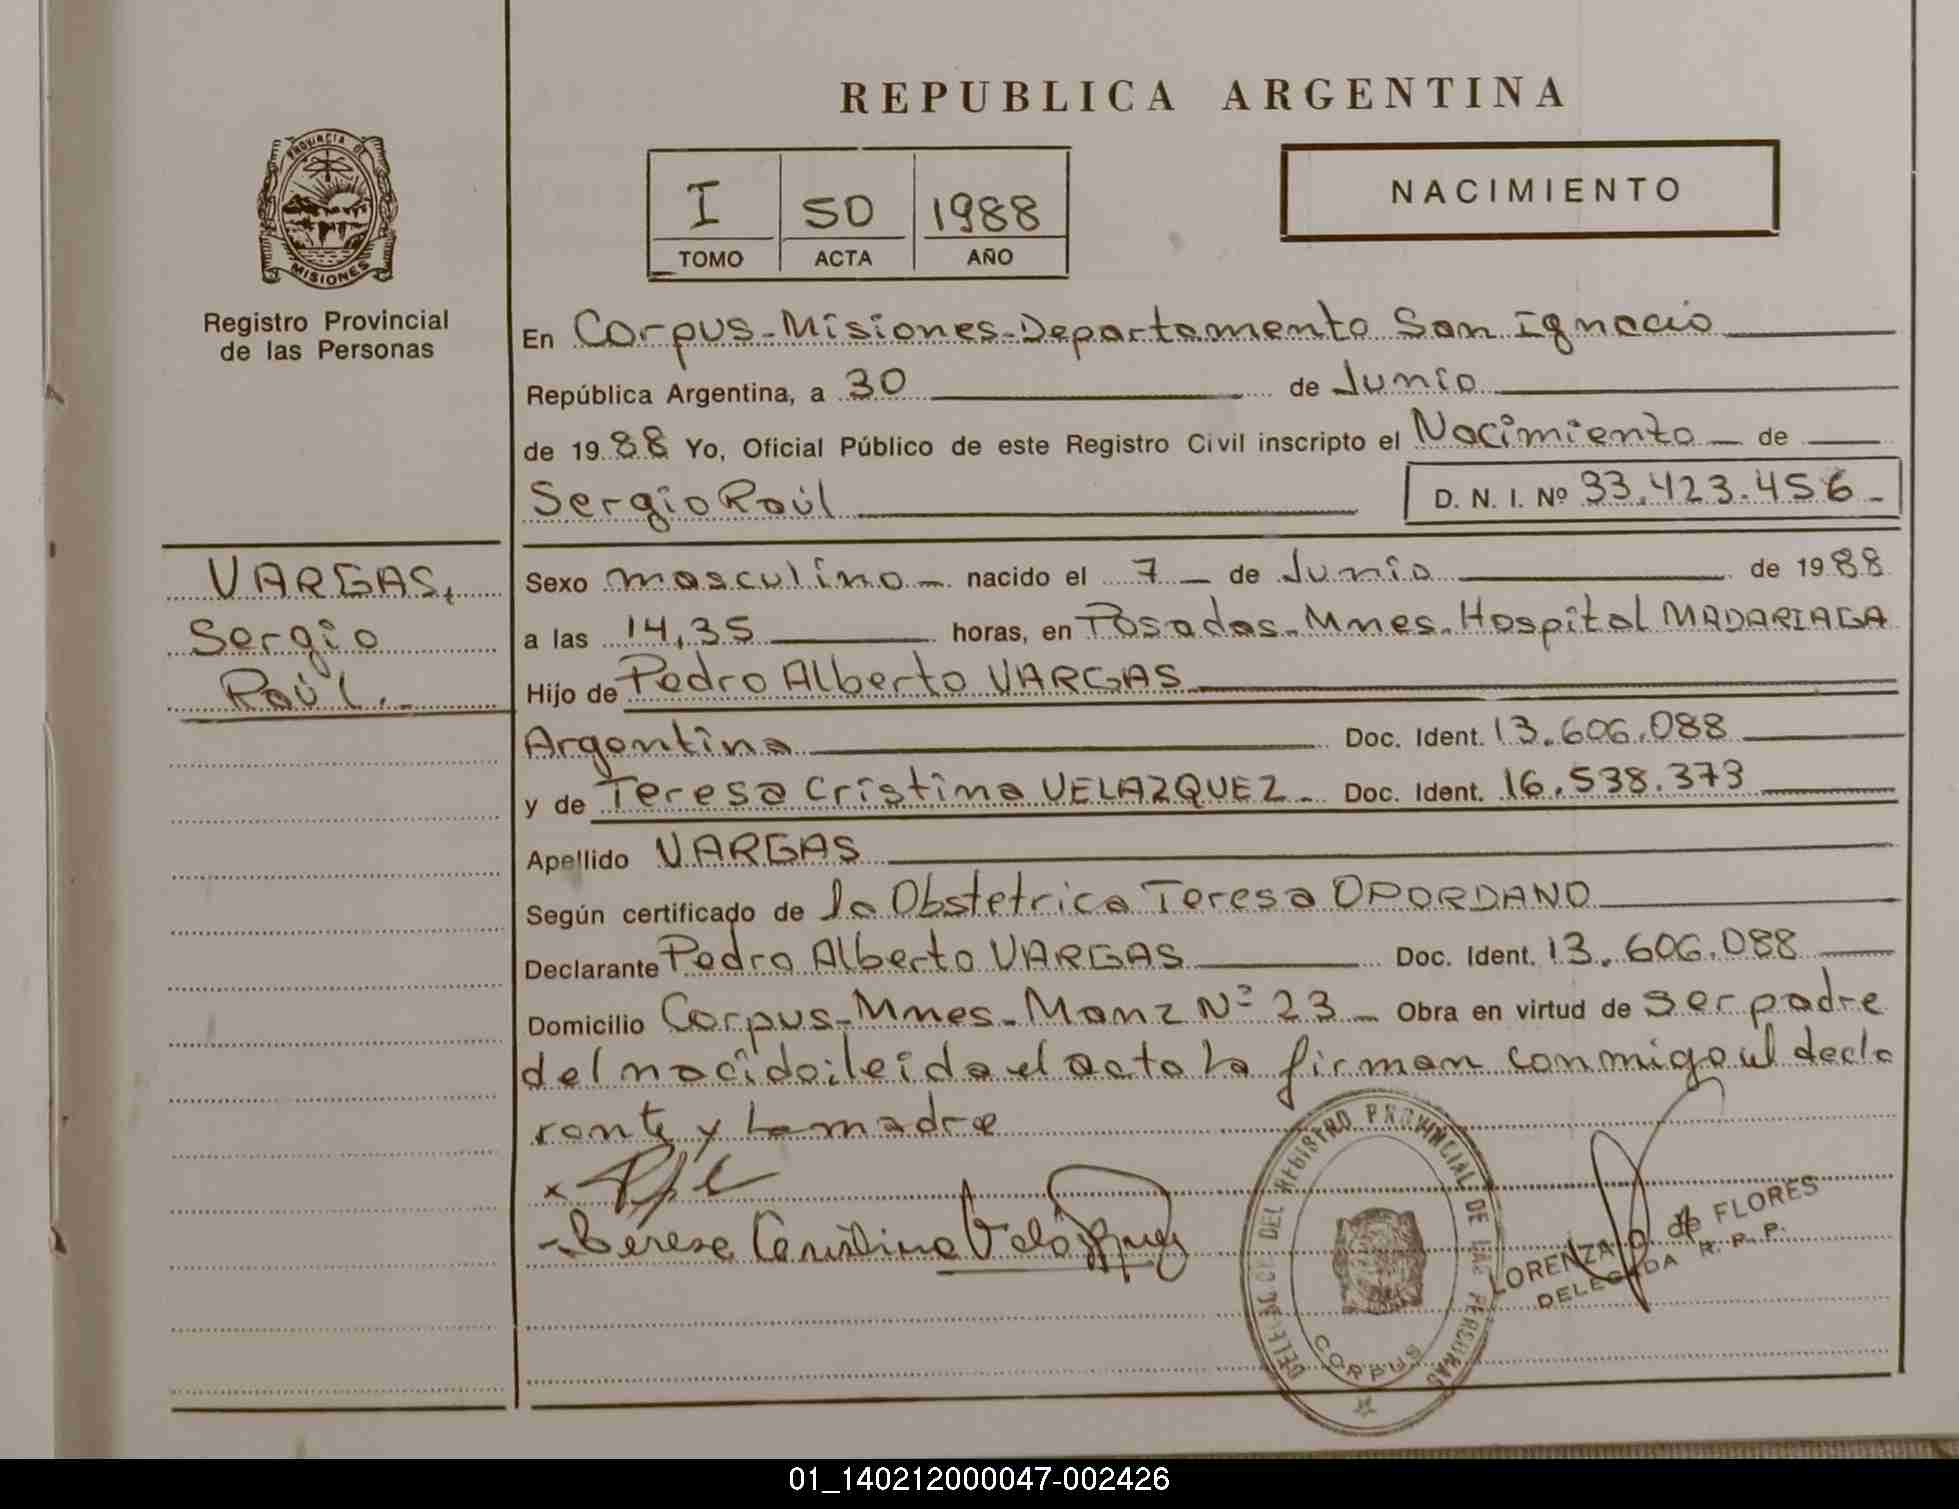 REPUBLICA ARGENTINA
PROVINCIA DE
MISIONES
Registro Provincial
de las Personas
I 50 1988
TOMO ACTA AÑO
NACIMIENTO
En Corpus-Misiones-Departamento San Ignacio
República Argentina, a 30 de Junio
de 1988 Yo, Oficial Público de este Registro Civil inscripto el Nacimiento de
Sergio Raúl D. N. I. Nº 33.423.456-
VARGAS,
Sergio
Raúl.-
Sexo masculino nacido el 7 de Junio de 1988
a las 14,35 horas, en Posadas-Mnes-Hospital MADARIAGA
Hijo de Pedro Alberto VARGAS
Argentina Doc. Ident. 13.606.088
y de Teresa Cristina VELAZQUEZ- Doc. Ident. 16.538.373
Apellido VARGAS
Según certificado de la Obstetrica Teresa OPORDANO
Declarante Pedro Alberto VARGAS Doc. Ident. 13.606.088
Domicilio Corpus-Mnes-Manz Nº 23 Obra en virtud de ser padre
del nacido; leida el acta la firman conmigo el decla
rante y la madre
Cristina Velázquez
DEL REGISTRO PROVINCIAL DE LAS PERSONAS
CORPUS
LORENZA O. de FLORES
DELEGADA R. P. P.
01_140212000047-002426